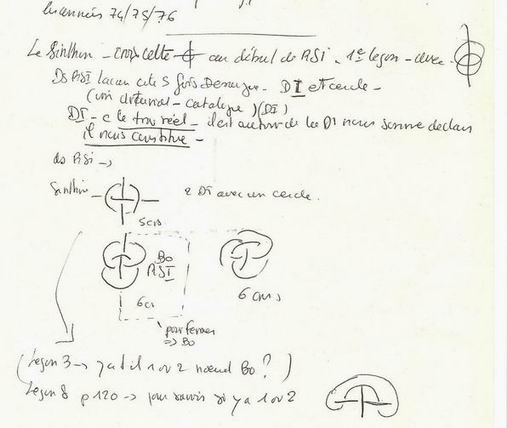 années 74/75/76
Le Sinthom - croix celte au début de RSI - 1e leçon - avec
Ds RSI Lacan cite 5 fois Desargues - DI et cercle -
(voir - catalogue) (DI)
DI - c le trou réel - il est autour de la DI nous
Il nous constitue -
ds RSI →
Sinthom 2 DI avec un cercle.
5 crs
Bo
RSI
6 cr 6 crs
pour fermer
⇒ Bo
(Leçon 3 → y a t il 1 ou 2 noeud Bo ?)
Leçon 8 p 120 → pour savoir si y a 1 ou 2